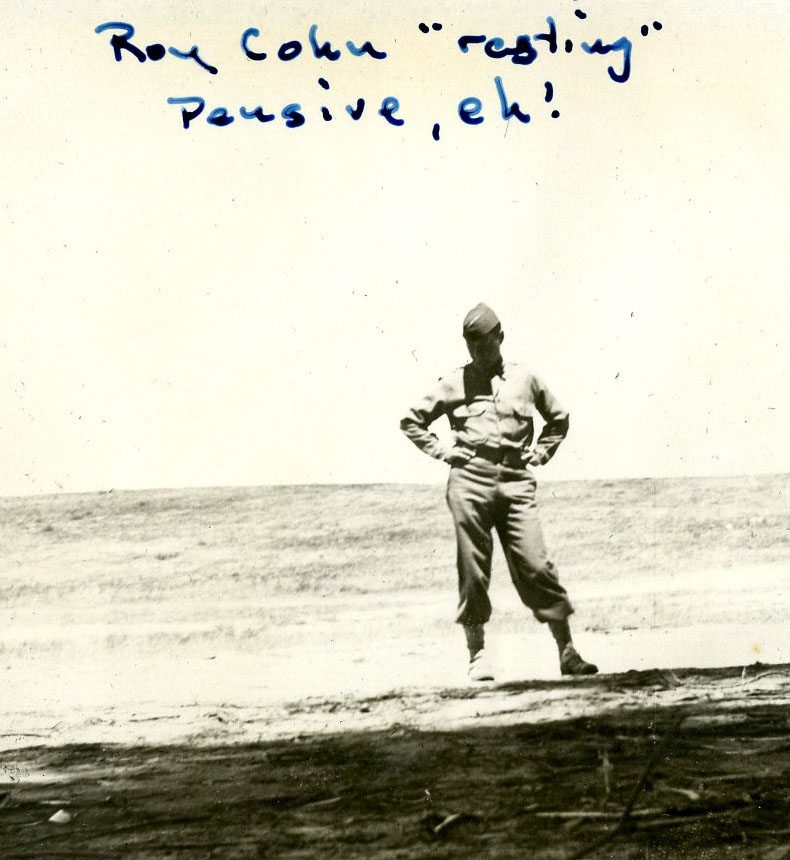 Roy Cohn "resting"
Pensive, eh!